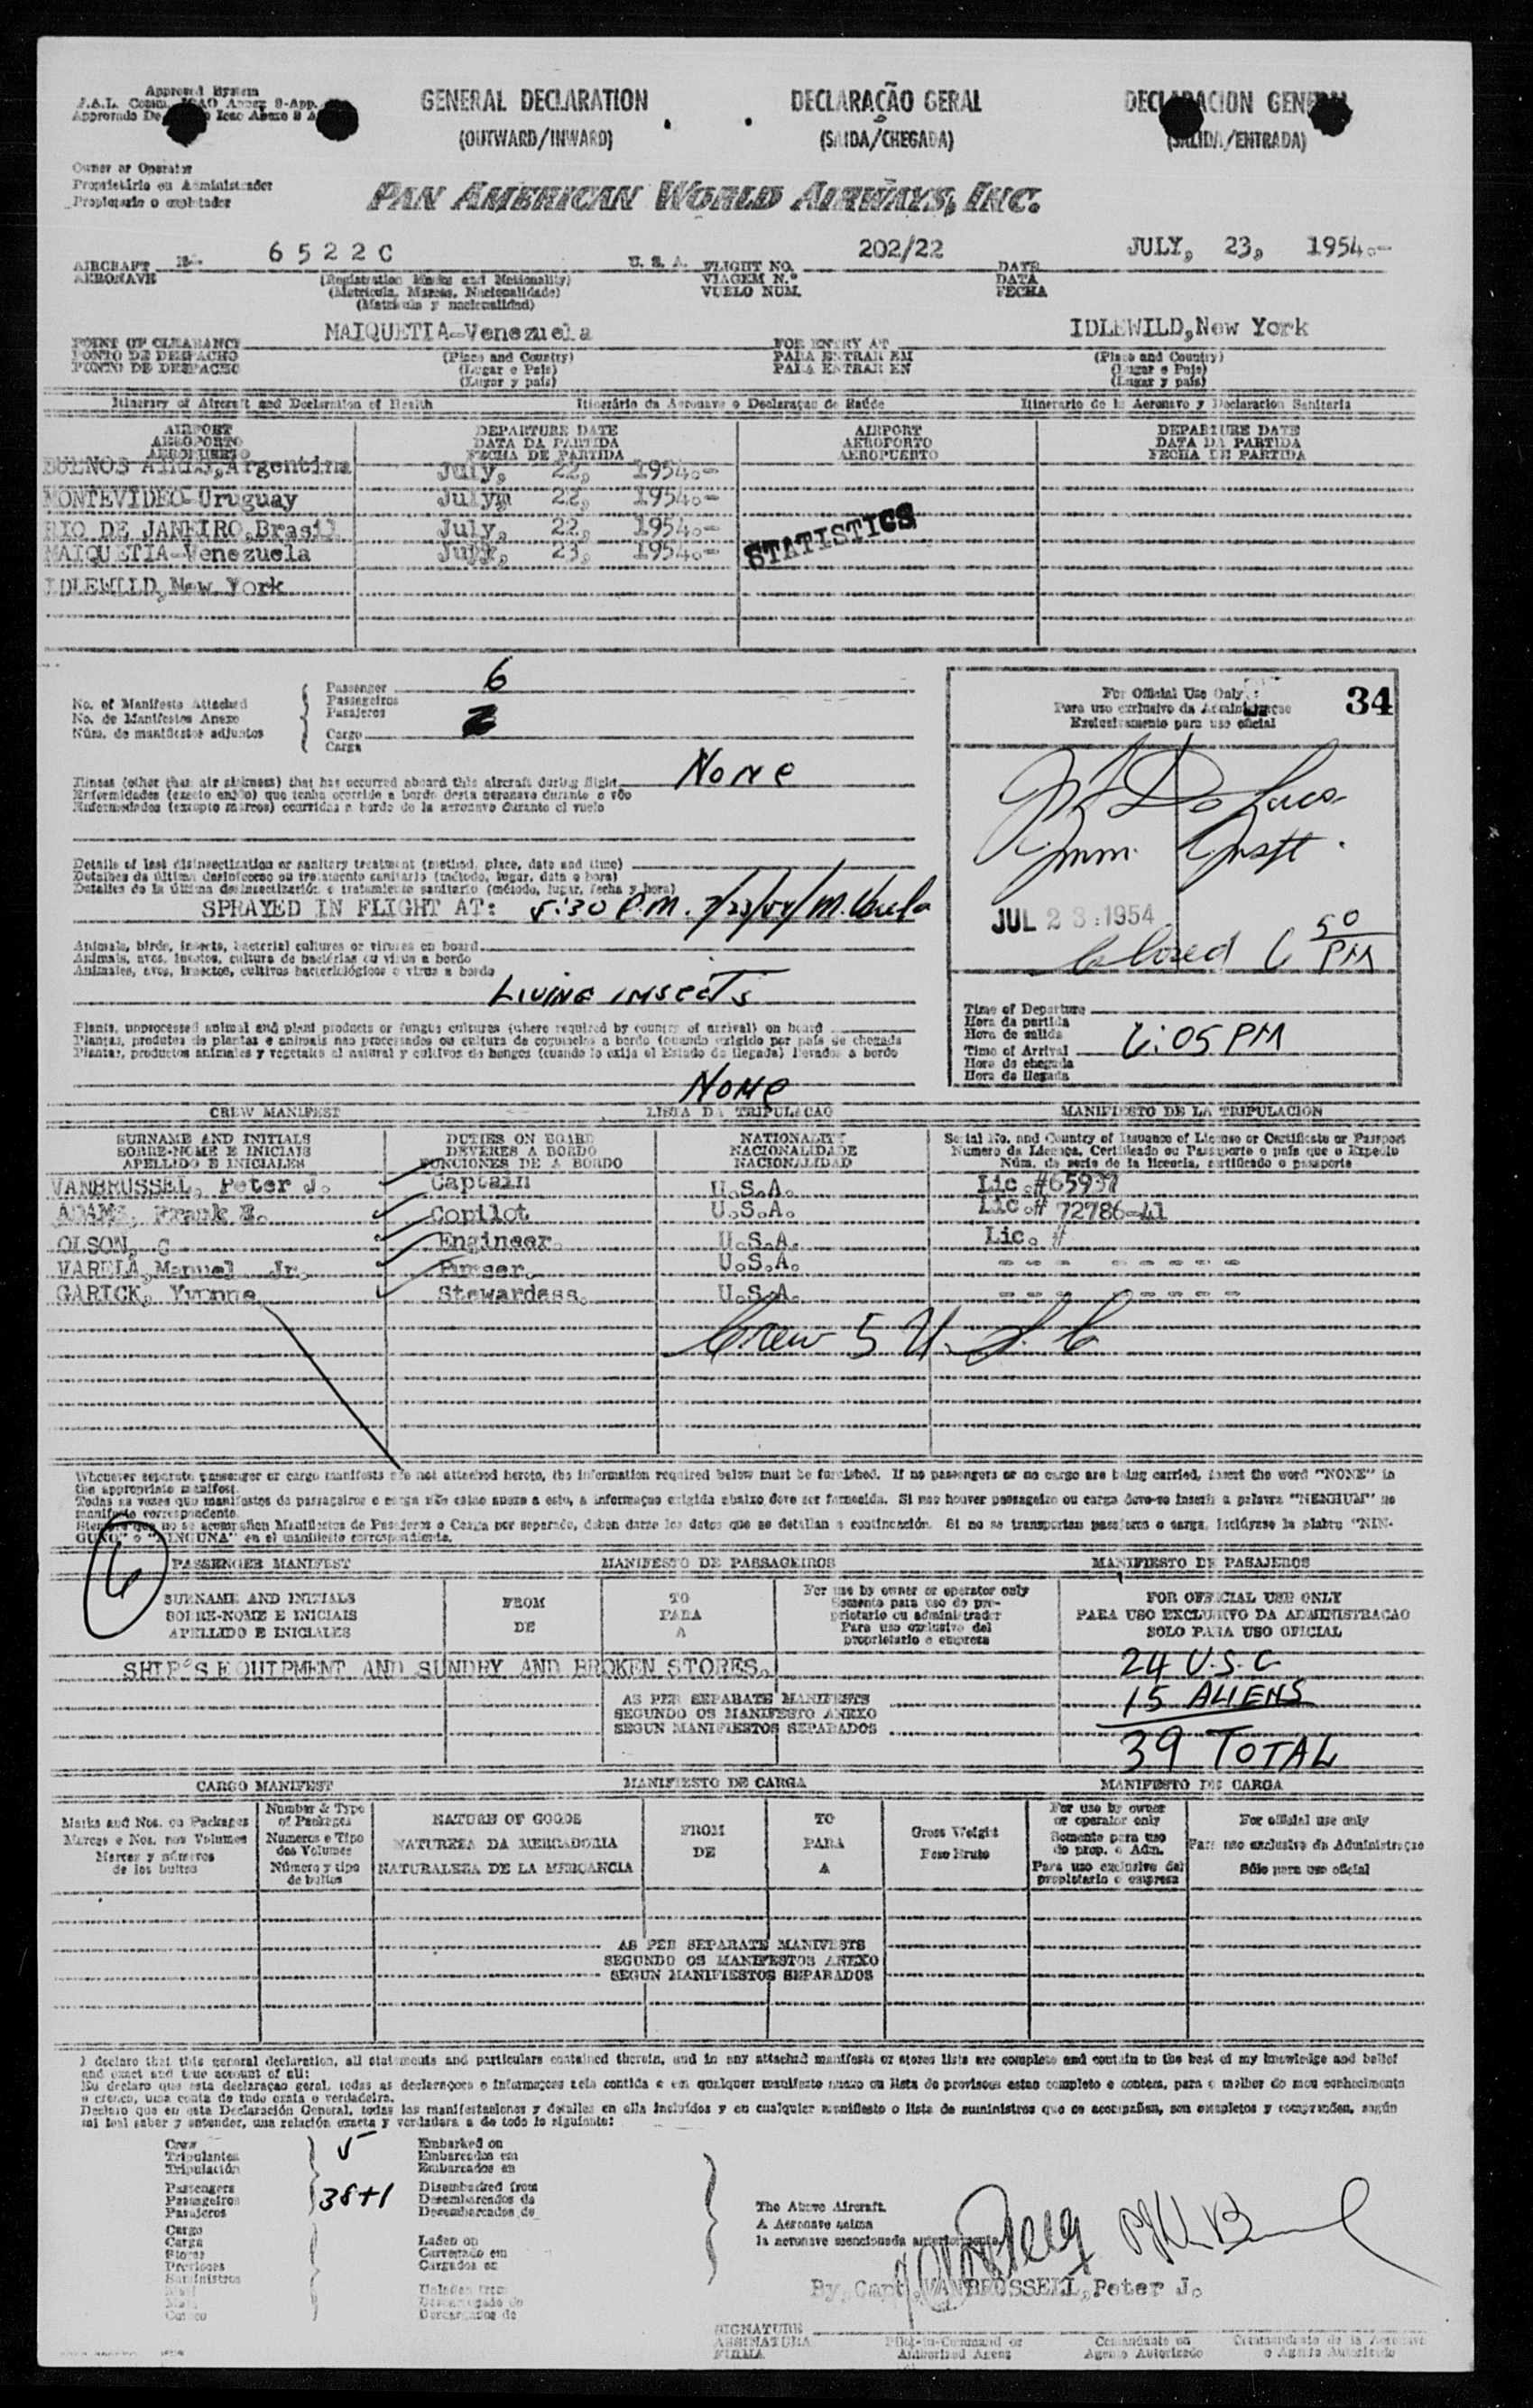 Approved System
GENERAL DECLARATION
DECLARAÇÃO GERAL
DECLARACION GENERAL
(OUTWARD/INWARD)
(SAIDA/CHEGADA)
(SALIDA/ENTRADA)
Owner or Operator
Proprietário ou Administrador
Propietario o explotador
PAN AMERICAN WORLD AIRWAYS, INC.
AIRCRAFT
AERONAVE
6 5 2 2 C
U. S. A.
FLIGHT NO.
VIAGEM N.º
VUELO NUM.
202/22
DATE
DATA
FECHA
JULY, 23, 1954.-
(Registration Marks and Nationality)
(Matricula, Marcas, Nacionalidade)
(Matricula y nacionalidad)
POINT OF CLEARANCE
PONTO DE DESPACHO
PUNTO DE DESPACHO
MAIQUETIA-Venezuela
(Place and Country)
(Lugar e Pais)
(Lugar y pais)
FOR ENTRY AT
PARA ENTRAR EM
PARA ENTRAR EN
IDLEWILD,New York
(Place and Country)
(Lugar e Pais)
(Lugar y pais)
Itinerary of Aircraft and Declaration of Health
Itinerário da Aeronave e Declaraçao de Saúde
Itinerario de la Aeronave y Declaracion Sanitaria
AIRPORT
AEROPORTO
AEROPUERTO
DEPARTURE DATE
DATA DA PARTIDA
FECHA DE PARTIDA
AIRPORT
AEROPORTO
AEROPUERTO
DEPARTURE DATE
DATA DA PARTIDA
FECHA DE PARTIDA
BUENOS AIRES,Argentina July, 22, 1954.-
MONTEVIDEO-Uruguay July 22, 1954.-
RIO DE JANEIRO,Brasil July, 22, 1954.-
MAIQUETIA-Venezuela July, 23, 1954.-
STATISTICS
IDLEWILD,New York
No. of Manifests Attached
No. de Manifestos Anexo
Núm. de manifiestos adjuntos
Passenger
Passageiros
Pasajeros
6
Cargo
Carga
For Official Use Only
Para uso exclusivo da Administraçao
Exclusivamente para uso oficial
34
Illness (other than air sickness) that has occurred aboard this aircraft during flight
Enfermidades (exceto enjôo) que tenha ocorrido a bordo desta aeronave durante o vôo
Enfermedades (excepto mareos) ocurridas a bordo de la aeronave durante el vuelo
None
Imm. Inspt.
Details of last disinsectization or sanitary treatment (method, place, date and time)
Detalhes da última desinfecçao ou tratamento sanitario (método, lugar, data e hora)
Detalles de la última desinsectización o tratamiento sanitario (método, lugar, fecha y hora)
SPRAYED IN FLIGHT AT: 5:30 P.M. 7/23/54/ M. Varela
JUL 23 1954
Closed 6 50 PM
Animals, birds, insects, bacterial cultures or viruses on board
Animais, aves, insetos, cultura de bactérias ou virus a bordo
Animales, aves, insectos, cultivos bacteriológicos o virus a bordo
LIVING INSECTS
Plants, unprocessed animal and plant products or fungus cultures (where required by country of arrival) on board
Plantas, produtos de plantas e animais nao processados ou cultura de cogumelos a bordo (quando exigido por país de chegada
Plantas, productos animales y vegetales al natural y cultivos de hongos (cuando lo exija el Estado de llegada) llevados a bordo
None
Time of Departure
Hora da partida
Hora de salida
Time of Arrival
Hora de chegada
Hora de llegada
6:05 PM
CREW MANIFEST
LISTA DA TRIPULACAO
MANIFIESTO DE LA TRIPULACION
SURNAME AND INITIALS
SOBRE-NOME E INICIAIS
APELLIDO E INICIALES
DUTIES ON BOARD
DEVERES A BORDO
FUNCIONES DE A BORDO
NATIONALITY
NACIONALIDADE
NACIONALIDAD
Serial No. and Country of Issuance of License or Certificate or Passport
Numero da Licença, Certificado ou Passaporte o país que o Expedio
Núm. de serie de la licencia, certificado o pasaporte
VANBRUSSEL, Peter J. Captain U.S.A. Lic.#65937
ADAMS, Frank E. Copilot U.S.A. Lic.# 72786-41
OLSON, C Engineer. U.S.A. Lic. #
VARELA,Manuel Jr. Purser. U.S.A. -- - - - - - -
GARICK, Yvonne Stewardess. U.S.A. -- - - - - - -
Crew 5 U.S.C
Whenever separate passenger or cargo manifests are not attached hereto, the information required below must be furnished. If no passengers or no cargo are being carried, insert the word "NONE" in
the appropriate manifest.
Todas as vezes que manifestos de passageiros e carga não estao anexo a esta, a informaçao exigida abaixo deve ser fornecida. Si nao houver passageiro ou carga deve-se inserir a palavra "NENHUM" no
manifesto correspondente.
Siempre que no se acompañen Manifiestos de Pasajeros o Carga por separado, deben darse los datos que se detallan a continuación. Si no se transportan pasajeros o carga, inclúyase la plabra "NIN-
GUNO" o "NINGUNA" en el manifiesto correspondiente.
6
PASSENGER MANIFEST
MANIFESTO DE PASSAGEIROS
MANIFIESTO DE PASAJEROS
SURNAME AND INITIALS
SOBRE-NOME E INICIAIS
APELLIDO E INICIALES
FROM
DE
TO
PARA
A
For use by owner or operator only
Somente para uso do pro-
prietario ou administrador
Para uso exclusivo del
proprietario o empresa
FOR OFFICIAL USE ONLY
PARA USO EXCLUSIVO DA ADMINISTRACAO
SOLO PARA USO OFICIAL
SHIP'S EQUIPMENT AND SUNDRY AND BROKEN STORES.
24 U.S.C
15 ALIENS
39 TOTAL
AS PER SEPARATE MANIFESTS
SEGUNDO OS MANIFESTO ANEXO
SEGUN MANIFIESTOS SEPARADOS
CARGO MANIFEST
MANIFIESTO DE CARGA
MANIFESTO DE CARGA
Marks and Nos. on Packages
Marcas e Nos. nos Volumes
Marcas y números
de los bultos
Number & Type
of Packages
Numeros e Tipo
dos Volumes
Número y tipo
de bultos
NATURE OF GOODS
NATUREZA DA MERCADORIA
NATURALEZA DE LA MERCANCIA
FROM
DE
TO
PARA
A
Gross Weight
Peso Bruto
For use by owner
or operator only
Somente para uso
do prop. e Adm.
Para uso exclusivo del
propietario o empresa
For official use only
Para uso exclusivo da Administraçao
Sólo para uso oficial
AS PER SEPARATE MANIFESTS
SEGUNDO OS MANIFESTOS ANEXO
SEGUN MANIFIESTOS SEPARADOS
I declare that this general declaration, all statements and particulars contained therein, and in any attached manifests or stores lists are complete and contain to the best of my knowledge and belief
and exact and true account of all:
Eu declaro que esta declaraçao geral, todas as declaraçoes e informaçoes nela contida e em qualquer manifesto anexo ou lista de provisoes estao completo e contem, para o melhor do meu conhecimento
e crença, uma conta de tudo exata e verdadeira.
Declaro que en esta Declaración General, todas las manifestaciones y detalles en ella incluídos y en cualquier manifiesto o lista de suministros que se acompañan, son completos y comprenden, según
mi leal saber y entender, una relación exacta y verdadera a de todo lo siguiente:
Crew
Tripulantes
Tripulación
5
Embarked on
Embarcados em
Embarcados en
Passengers
Passageiros
Pasajeros
38+1
Disembarked from
Desembarcados de
Desembarcados de
Cargo
Carga
Stores
Provisoes
Suministros
Mail
Mala
Correo
Laden on
Carregado em
Cargados en
Unladen from
Descarregado do
Descargados de
The Above Aircraft.
A Aeronave acima
la aeronave mencionada anteriormente.
By, Capt. VANBRUSSELL,Peter J.
SIGNATURE
ASSINATURA
FIRMA
Pilot-in-Command or
Authorized Agent
Comandante ou
Agente Autorizado
Comandante de la Aeronave
o Agente Autorizado